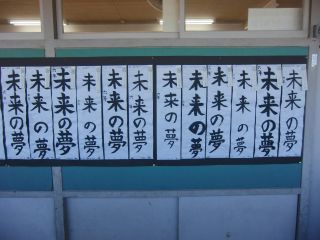 未来の夢
未来の夢
未来の夢
未来の夢
未来の夢
未来の夢
未来の夢
未来の夢
未来の夢
未来の夢
未来の夢
未来の夢